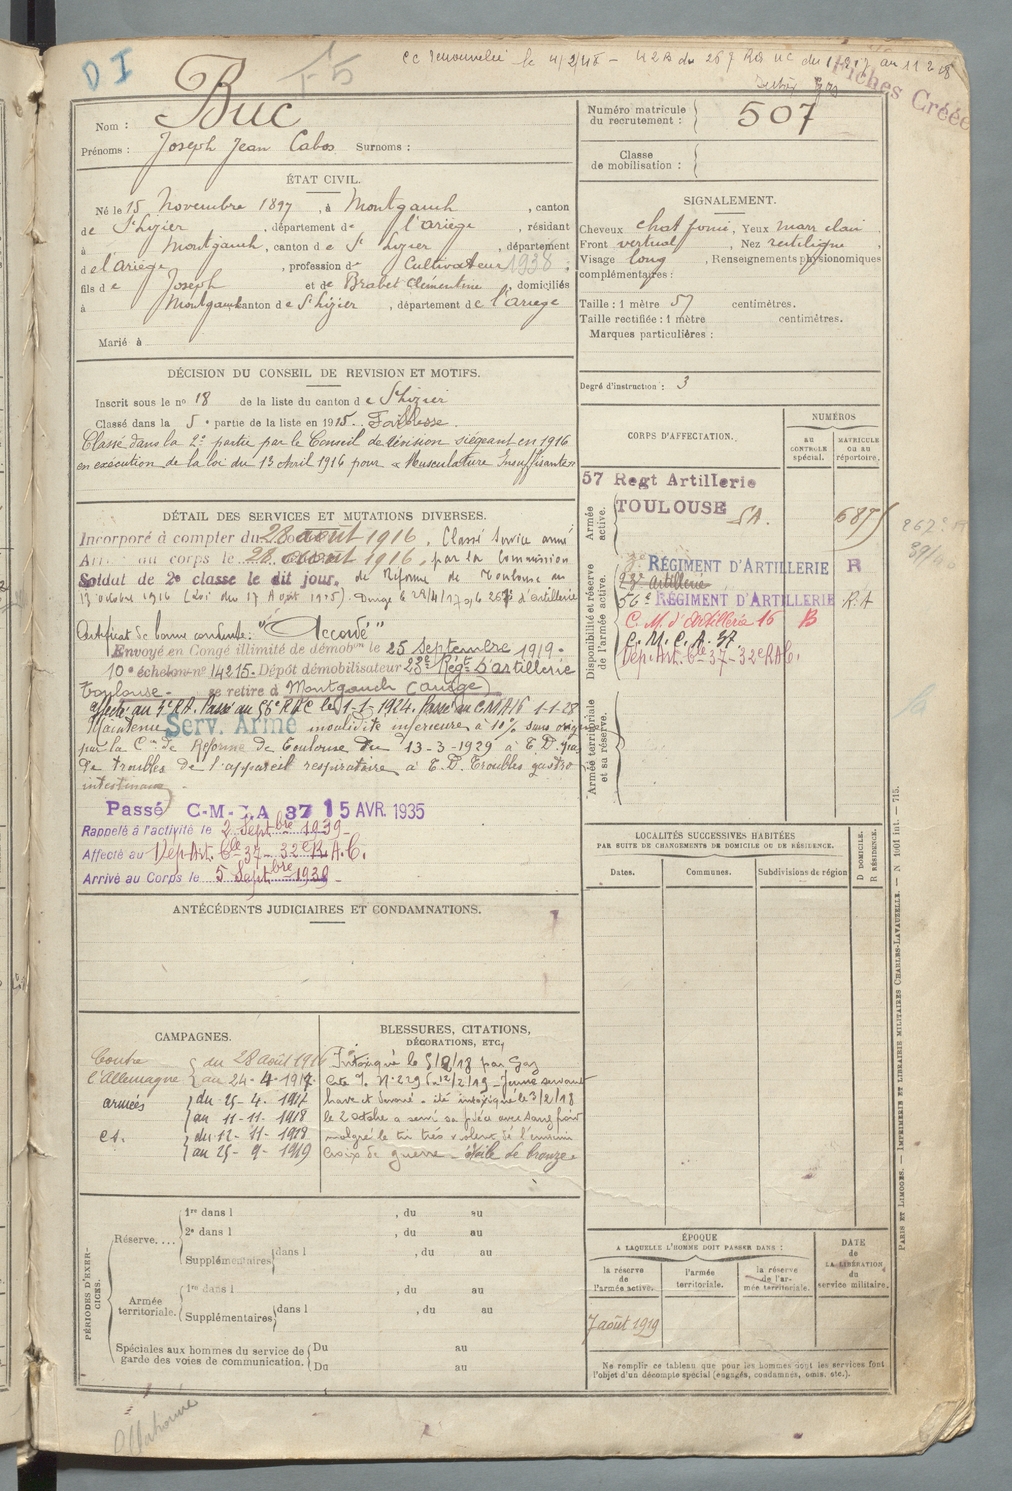 DI
F5
cc renouvelée le 4/2/48 - 42B du 267 RA UC du
au 11 2 18
Fiches Créées
Nom : Buc
Prénoms : Joseph Jean Cabos Surnoms :
Numéro matricule du recrutement : 507
Classe de mobilisation :
ÉTAT CIVIL.
Né le 15 Novembre 1897, à Montgauch, canton
de St Lizier, département de l'Ariège, résidant
à Montgauch, canton de St Lizier, département
de l'Ariège, profession de Cultivateur 1938 ;
fils de Joseph et de Brabet Clémentine, domiciliés
à Montgauch canton de St Lizier, département de l'Ariege
Marié à
SIGNALEMENT.
Cheveux chat foncé, Yeux marr clair,
Front vertical, Nez rectiligne,
Visage long, Renseignements physionomiques
complémentaires :
Taille : 1 mètre 57 centimètres.
Taille rectifiée : 1 mètre centimètres.
Marques particulières :
Degré d'instruction : 3
DÉCISION DU CONSEIL DE REVISION ET MOTIFS.
Inscrit sous le no 18 de la liste du canton de St Lizier
Classé dans la 5e partie de la liste en 1915. Faiblesse.
Classé dans la 2e partie par le Conseil de révision siégeant en 1916
en exécution de la loi du 13 Avril 1916 pour « Musculature Insuffisante »
DÉTAIL DES SERVICES ET MUTATIONS DIVERSES.
Incorporé à compter du 28 août 1916, Classé Service armé
Arr au corps le 28 août 1916, par la Commission
Soldat de 2e classe le dit jour. de Réforme de Toulouse du
13 octobre 1916 (Loi du 17 Août 1915). Dirigé le 24/4/17 au 267 d'artillerie
Certificat de bonne conduite : "Accordé"
Envoyé en Congé illimité de démobon le 25 Septembre 1919.
10e échelon no 14215. Dépôt démobilisateur 23e Régt d'artillerie
Toulouse. se retire à Montgauch (Ariège)
Affecté au 3e RA. Passé au 56e RAC le 1-1-1924. Passé au CMA16 1-1-28
Maintenu Serv. Armé invalidité inférieure à 10% sans
par la Con de Réforme de Toulouse du 13-3-1929 à T.D.
de troubles de l'appareil respiratoire à T.D. Troubles gastro
intestinaux
Passé C.M.C.A 37 15 AVR. 1935
Rappelé à l'activité le 2 Septbre 1939
Affecté au Dép. Art. Ctle 37 - 32e R.A.C.
Arrivé au Corps le 5 Septbre 1939
CORPS D'AFFECTATION.
NUMÉROS
AU CONTRÔLE spécial.
MATRICULE ou au répertoire.
Armée active.
57 Regt Artillerie
TOULOUSE SA. 6875
Disponibilité et réserve de l'armée active.
3e RÉGIMENT D'ARTILLERIE R
23e artillerie
56e RÉGIMENT D'ARTILLERIE R.A
C. M. d'artillerie 16 B
C. M. C. A. 37.
Dép. Art. Ctle 37 - 32e R.A.C.
Armée territoriale et sa réserve.
LOCALITÉS SUCCESSIVES HABITÉES
PAR SUITE DE CHANGEMENTS DE DOMICILE OU DE RÉSIDENCE.
Dates.
Communes.
Subdivisions de région
D DOMICILE.
R RÉSIDENCE.
ANTÉCÉDENTS JUDICIAIRES ET CONDAMNATIONS.
CAMPAGNES.
Contre l'Allemagne du 28 août 1916
au 24-4-1917.
armées du 25-4-1917
au 11-11-1918
du 12-11-1918
au 25-9-1919
BLESSURES, CITATIONS,
DÉCORATIONS, ETC.
Intoxiqué le 3/2/18 par Gaz
Cité No 229 12/2/19 - Jeune servant
brave et dévoué. été intoxiqué le 3/2/18
le 2 octobre a servi sa pièce avec sang froid
malgré le tir très violent de l'ennemi
Croix de guerre - étoile de bronze.
PÉRIODES D'EXERCICES.
Réserve....
1re dans l , du au
2e dans l , du au
Supplémentaires dans l , du au
Armée territoriale.
1re dans l , du au
Supplémentaires dans l , du au
Spéciales aux hommes du service de garde des voies de communication.
Du au
Du au
ÉPOQUE
A LAQUELLE L'HOMME DOIT PASSER DANS :
la réserve de l'armée active.
l'armée territoriale.
la réserve de l'armée territoriale.
DATE de LA LIBÉRATION du service militaire.
7 août 1919
Ne remplir ce tableau que pour les hommes dont les services font
l'objet d'un décompte spécial (engagés, condamnés, omis, etc.).
PARIS ET LIMOGES. — IMPRIMERIE ET LIBRAIRIE MILITAIRES CHARLES-LAVAUZELLE. — N 1601 int. — 715.